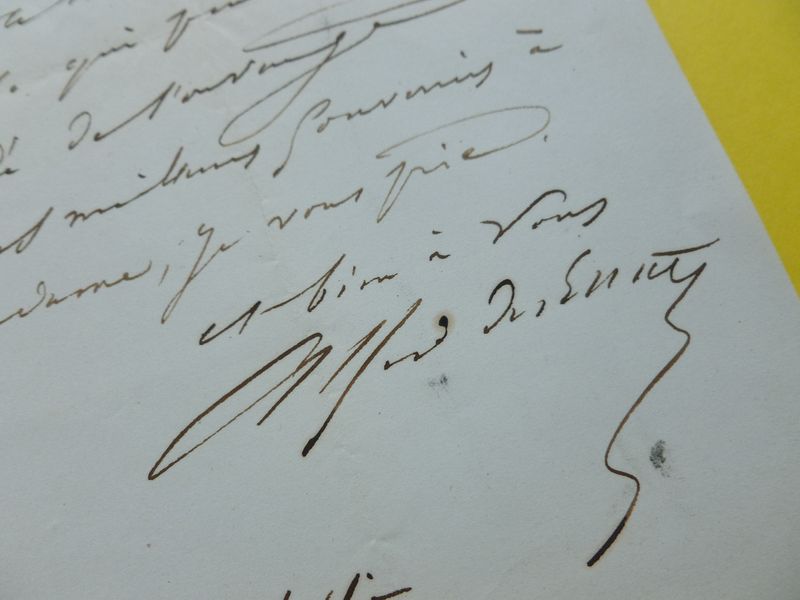 qui
de l'ouvrage
meilleurs souvenirs à
dame, je vous prie.
et bien à vous
Alfred Des Essarts